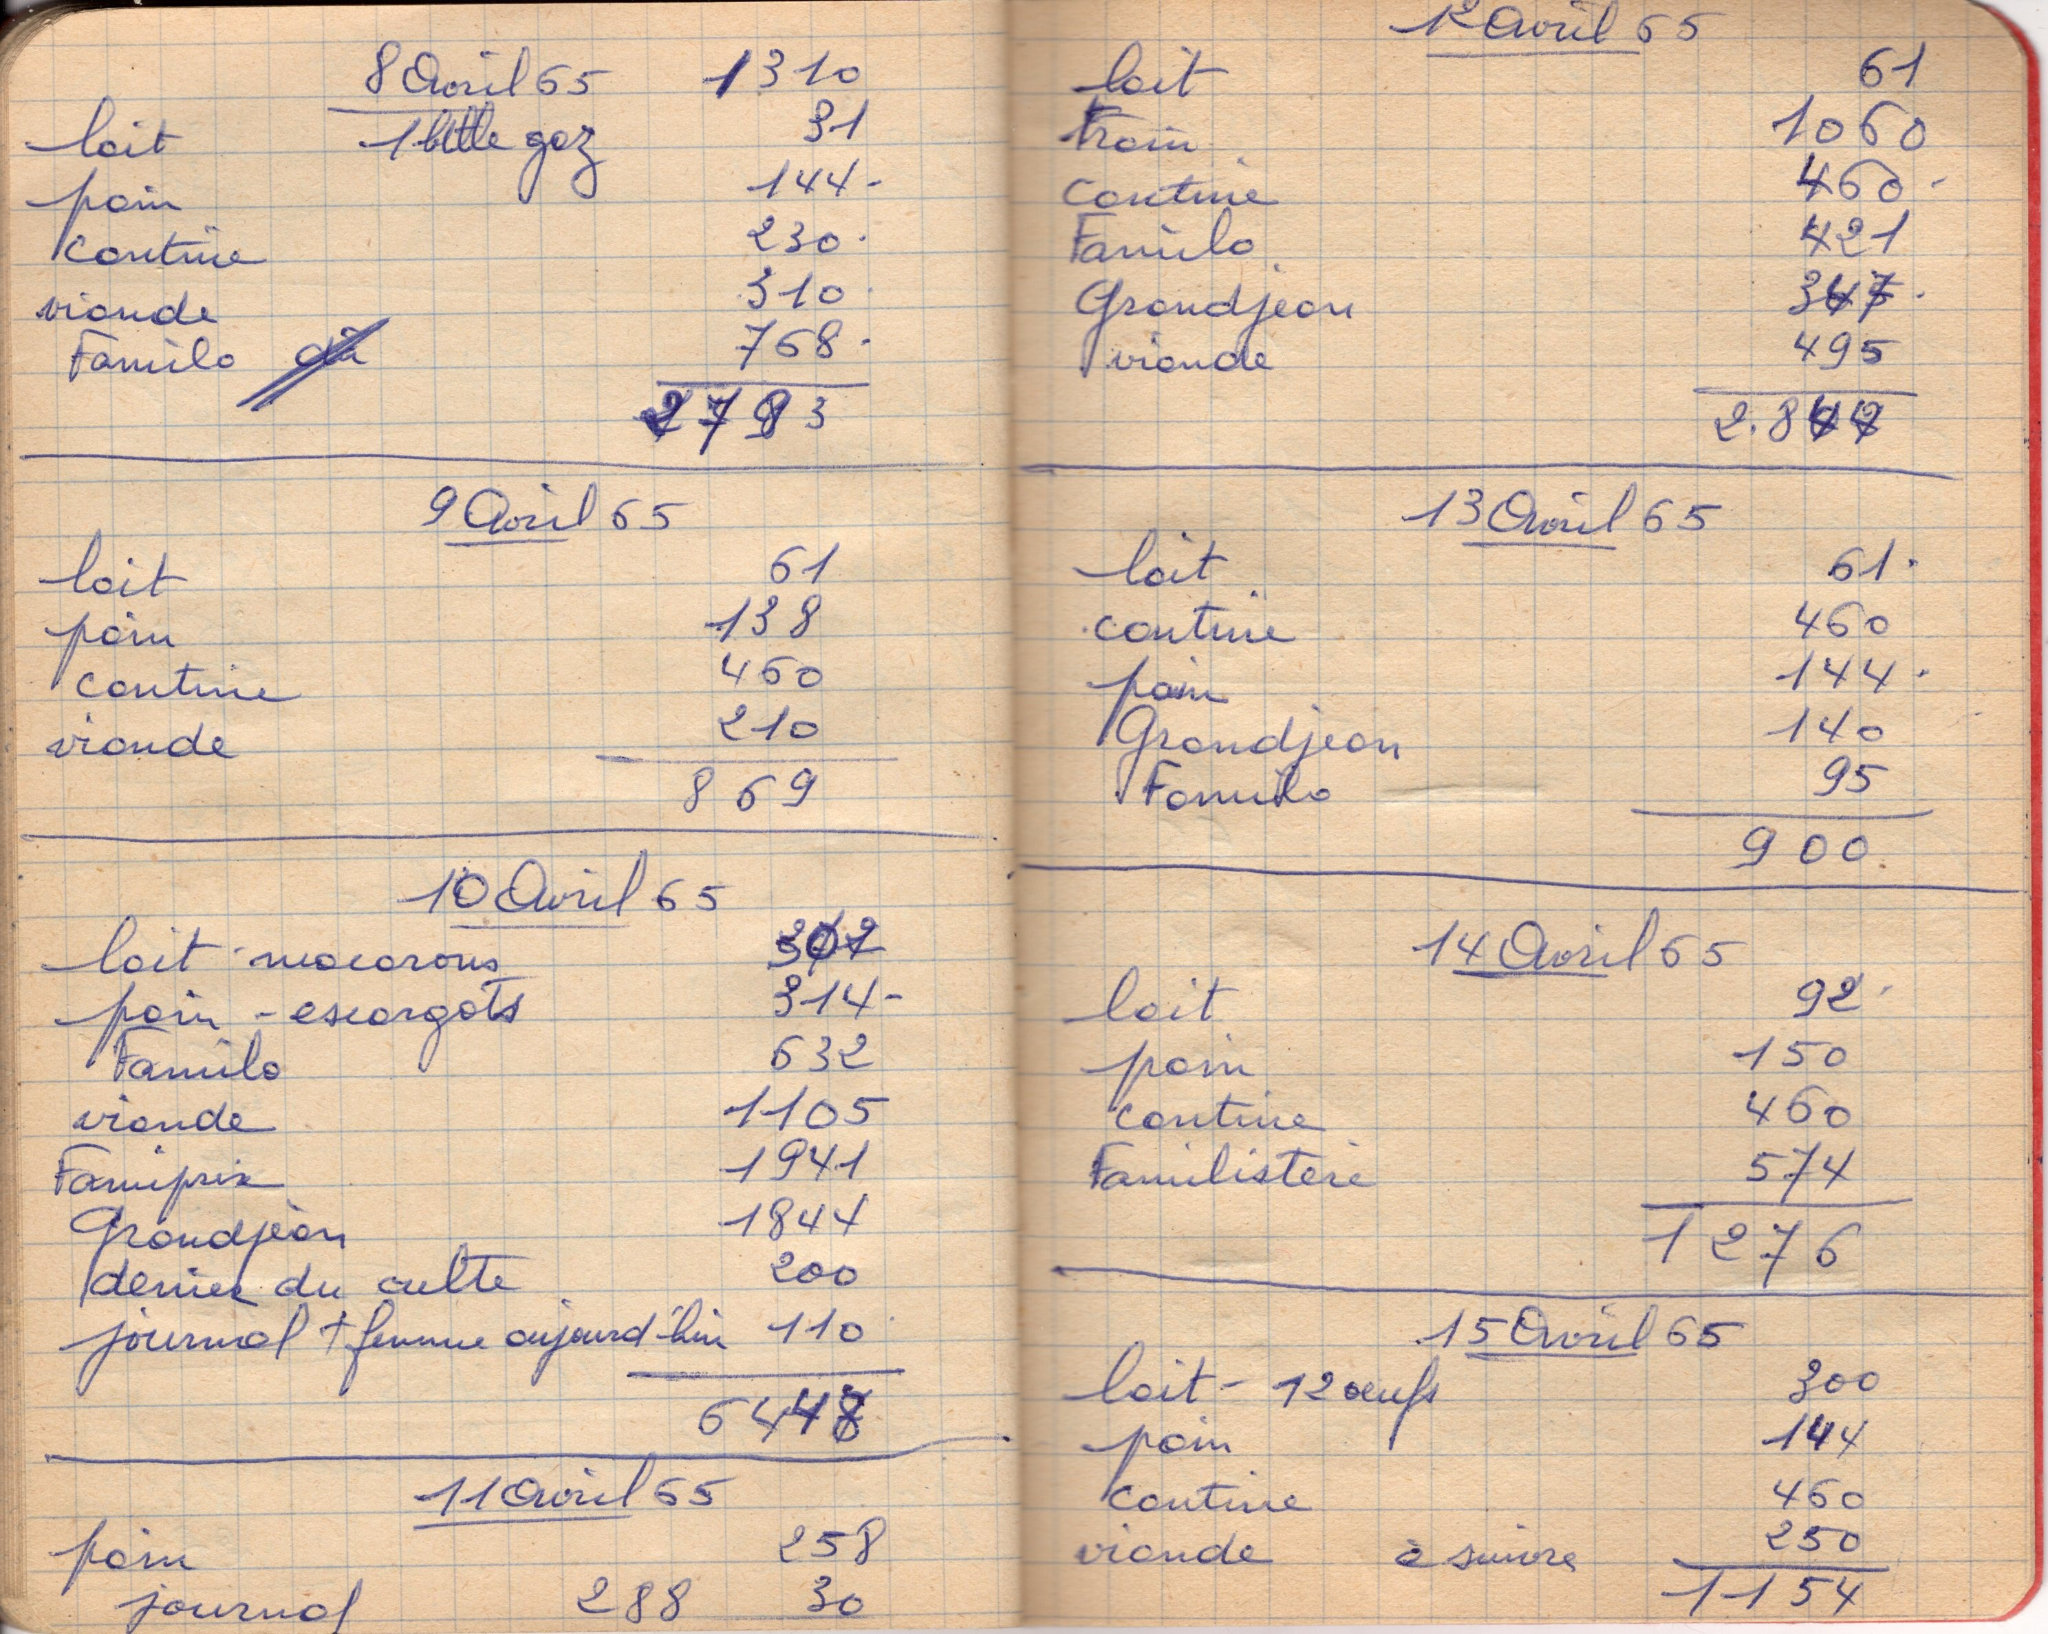 8 Avril 65 1310
lait 1 btlle gaz 31
pain 144-
cantine 230.
viande 310.
Familo dû 768.
2793
9 Avril 65
lait 61
pain 138
cantine 460
viande 210
869
10 Avril 65
lait - macarons 302
pain - escargots 314-
Familo 632
viande 1105
Famiprix 1941
Grandjean 1844
denier du culte 200
journal + femme aujourd'hui 110
6448
11 Avril 65
pain 258
journal 288 30
12 Avril 65
lait 61
train 1060
cantine 460-
Familo 421
Grandjean 347.
viande 495
13 Avril 65
lait 61.
cantine 460
pain 144.
Grandjean 140
Familo 95
900
14 Avril 65
lait 92
pain 150
cantine 460
Familistère 574
1276
15 Avril 65
lait - 12 œufs 300
pain 144
cantine 460
viande à suivre 250
1154